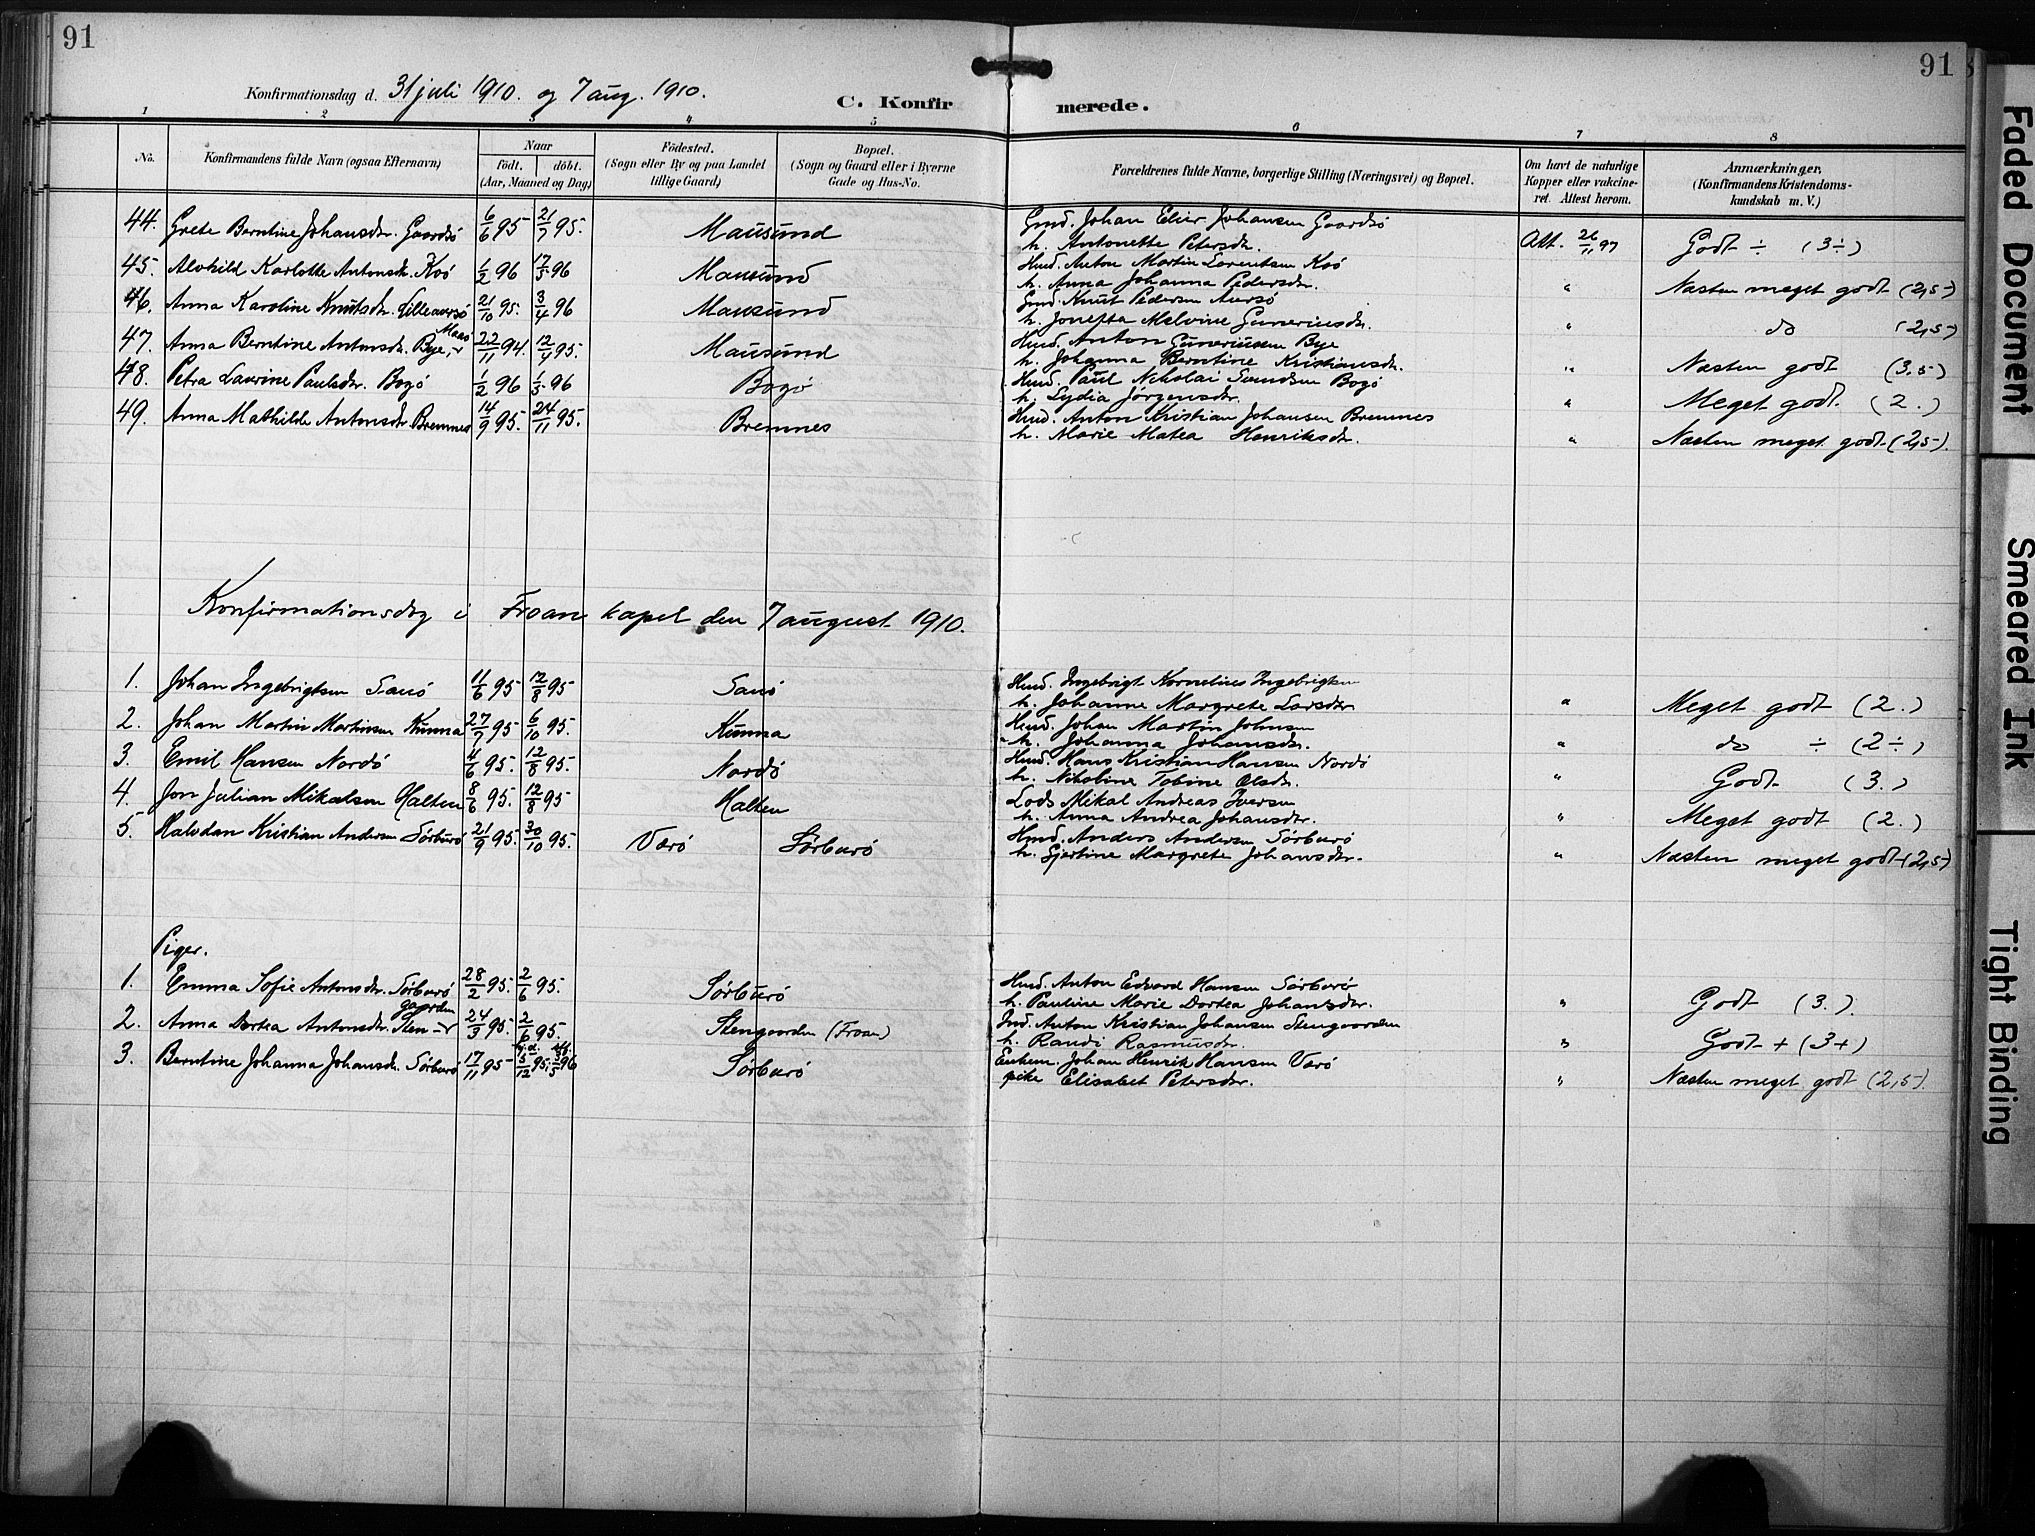 91
91
Konfirmationsdag d. 31 juli 1910. og 7 aug. 1910.
C. Konfirmerede.
1 2 3 4 5 6 7 8
No.
Konfirmandens fulde Navn (ogsaa Efternavn)
Naar
födt. döbt.
(Aar, Maaned og Dag)
Födested.
(Sogn eller By og paa Landet
tillige Gaard)
Bopæl.
(Sogn og Gaard eller i Byerne
Gade og Hus-No.
Forældrenes fulde Navne, borgerlige Stilling (Næringsvei) og Bopæl.
Om havt de naturlige
Kopper eller vakcine-
ret. Attest herom.
Anmærkninger.
(Konfirmandens Kristendoms-
kundskab m. V.)
44. Grete Berntine Johansdr. Gaardsö 6/6 95 21/7 95. Mausund Gmd. Johan Elier Johansen Gaardsö
h. Antonette Petersdr. Att. 26/11 97 Godt ÷ (3÷)
45. Alvhild Karlotte Antonsdr. Kvö 1/2 96 17/5 96 Mausund Hmd. Anton Martin Lorentsen Kvö
h. Anna Johanna Pedersdr. " Næsten meget godt (2,5)
46. Anna Karoline Knutsdr. Lilleaursö 21/10 95. 3/4 96 Mausund Gmd. Knut Pedersen Aursö
h. Jonetta Melvine Guneriusdr. " do (2,5)
47. Anna Berntine Antonsdr. Bye, Maus 22/11 94. 12/4 95. Mausund Hmd. Anton Guneriussen Bye
h. Johanna Berntine Kristiansdr. " Næsten godt (3,5)
48. Petra Laurine Paulsdr. Bogö 1/2 96 1/3 96 Bogö Hmd. Paul Nikolai Svendsen Bogö
h. Lydia Jørgensdr. " Meget godt. (2.)
49. Anna Mathilde Antonsdr. Bremnes 14/9 95. 24/11 95. Bremnes Hmd. Anton Kristian Johansen Bremnes
h. Marie Matea Henriksdr. " Næsten meget godt (2,5).
Konfirmationsdag i Froan kapel den 7 august 1910.
1. Johan Ingebrigtsen Sauö 11/6 95 12/8 95 Sauö Hmd. Ingebrigt Kornelius Ingebrigtsen
h. Johanne Margrete Larsdr " Meget godt (2.)
2. Johan Martin Martinsen Kunna 27/7 95 6/10 95. Kunna Hmd. Johan Martin Johnsen
h. Johanna Johansdr. " do ÷ (2÷)
3. Emil Hansen Nordö 4/6 95. 12/8 95. Nordö Hmd. Hans Kristian Hansen Nordö
h. Nikoline Tobine Olsdr. " Godt (3.)
4. Jon Julian Mikalsen Halten 8/6 95. 12/8 95 Halten Lods Mikal Andreas Iversen
h. Anna Andrea Johansdr. " Meget godt (2.)
5. Halvdan Kristian Andersen Sørburö 21/9 95. 30/10 95. Værö Sørburö Hmd. Anders Andersen Sørburö
h. Gjertine Margrete Johansdr. " Næsten meget godt (2,5)
Piger.
1. Emma Sofie Antonsdr. Sørburö 28/2 95. 2/6 95. Sørburö Hmd. Anton Edvard Hansen Sørburö
h. Pauline Marie Dortea Johansdr. " Godt (3.)
2. Anna Dortea Antonsdr. Stengaarden 24/3 95. 2/6 95. Stengaarden (Froan) Ind. Anton Kristian Johansen Stengaarden
h. Randi Rasmusdr. " Godt + (3+)
3. Berntine Johanna Johansdr. Sørburö 17/11 95 hj.d. 15/12 95. Sørburö Enkem. Johan Henrik Hansen Værö
pike Elisabet Petersdr. " Næsten meget godt (2,5).
Faded Document
Smeared Ink
Tight Binding